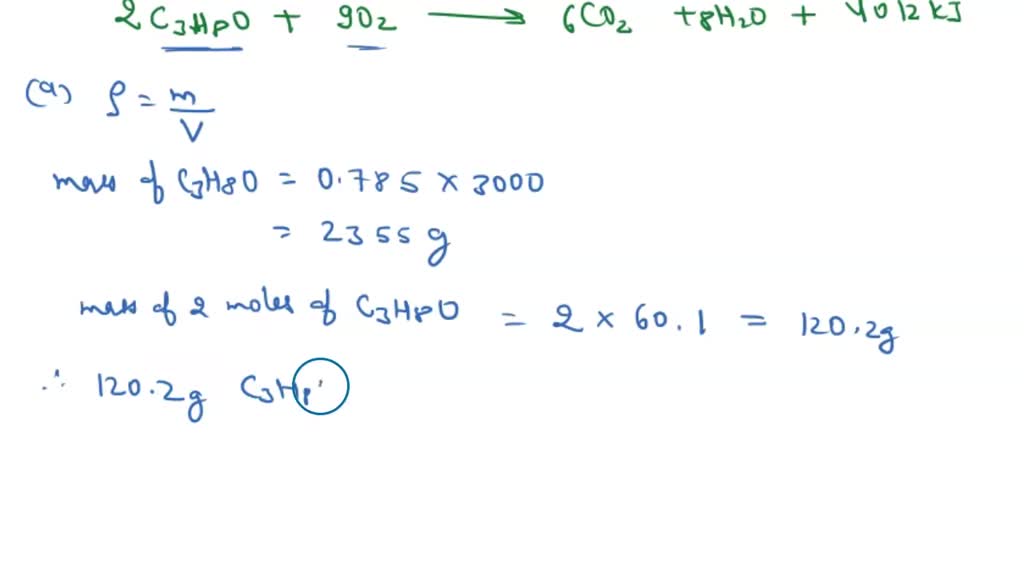 2C3H8O + 9O2 → 6CO2 + 8H2O + 4012 kJ
(a) ρ = m/V
mass of C3H8O = 0.785 × 3000
= 2355 g
mass of 2 moles of C3H8O = 2 × 60.1 = 120.2g
∴ 120.2g C3H8